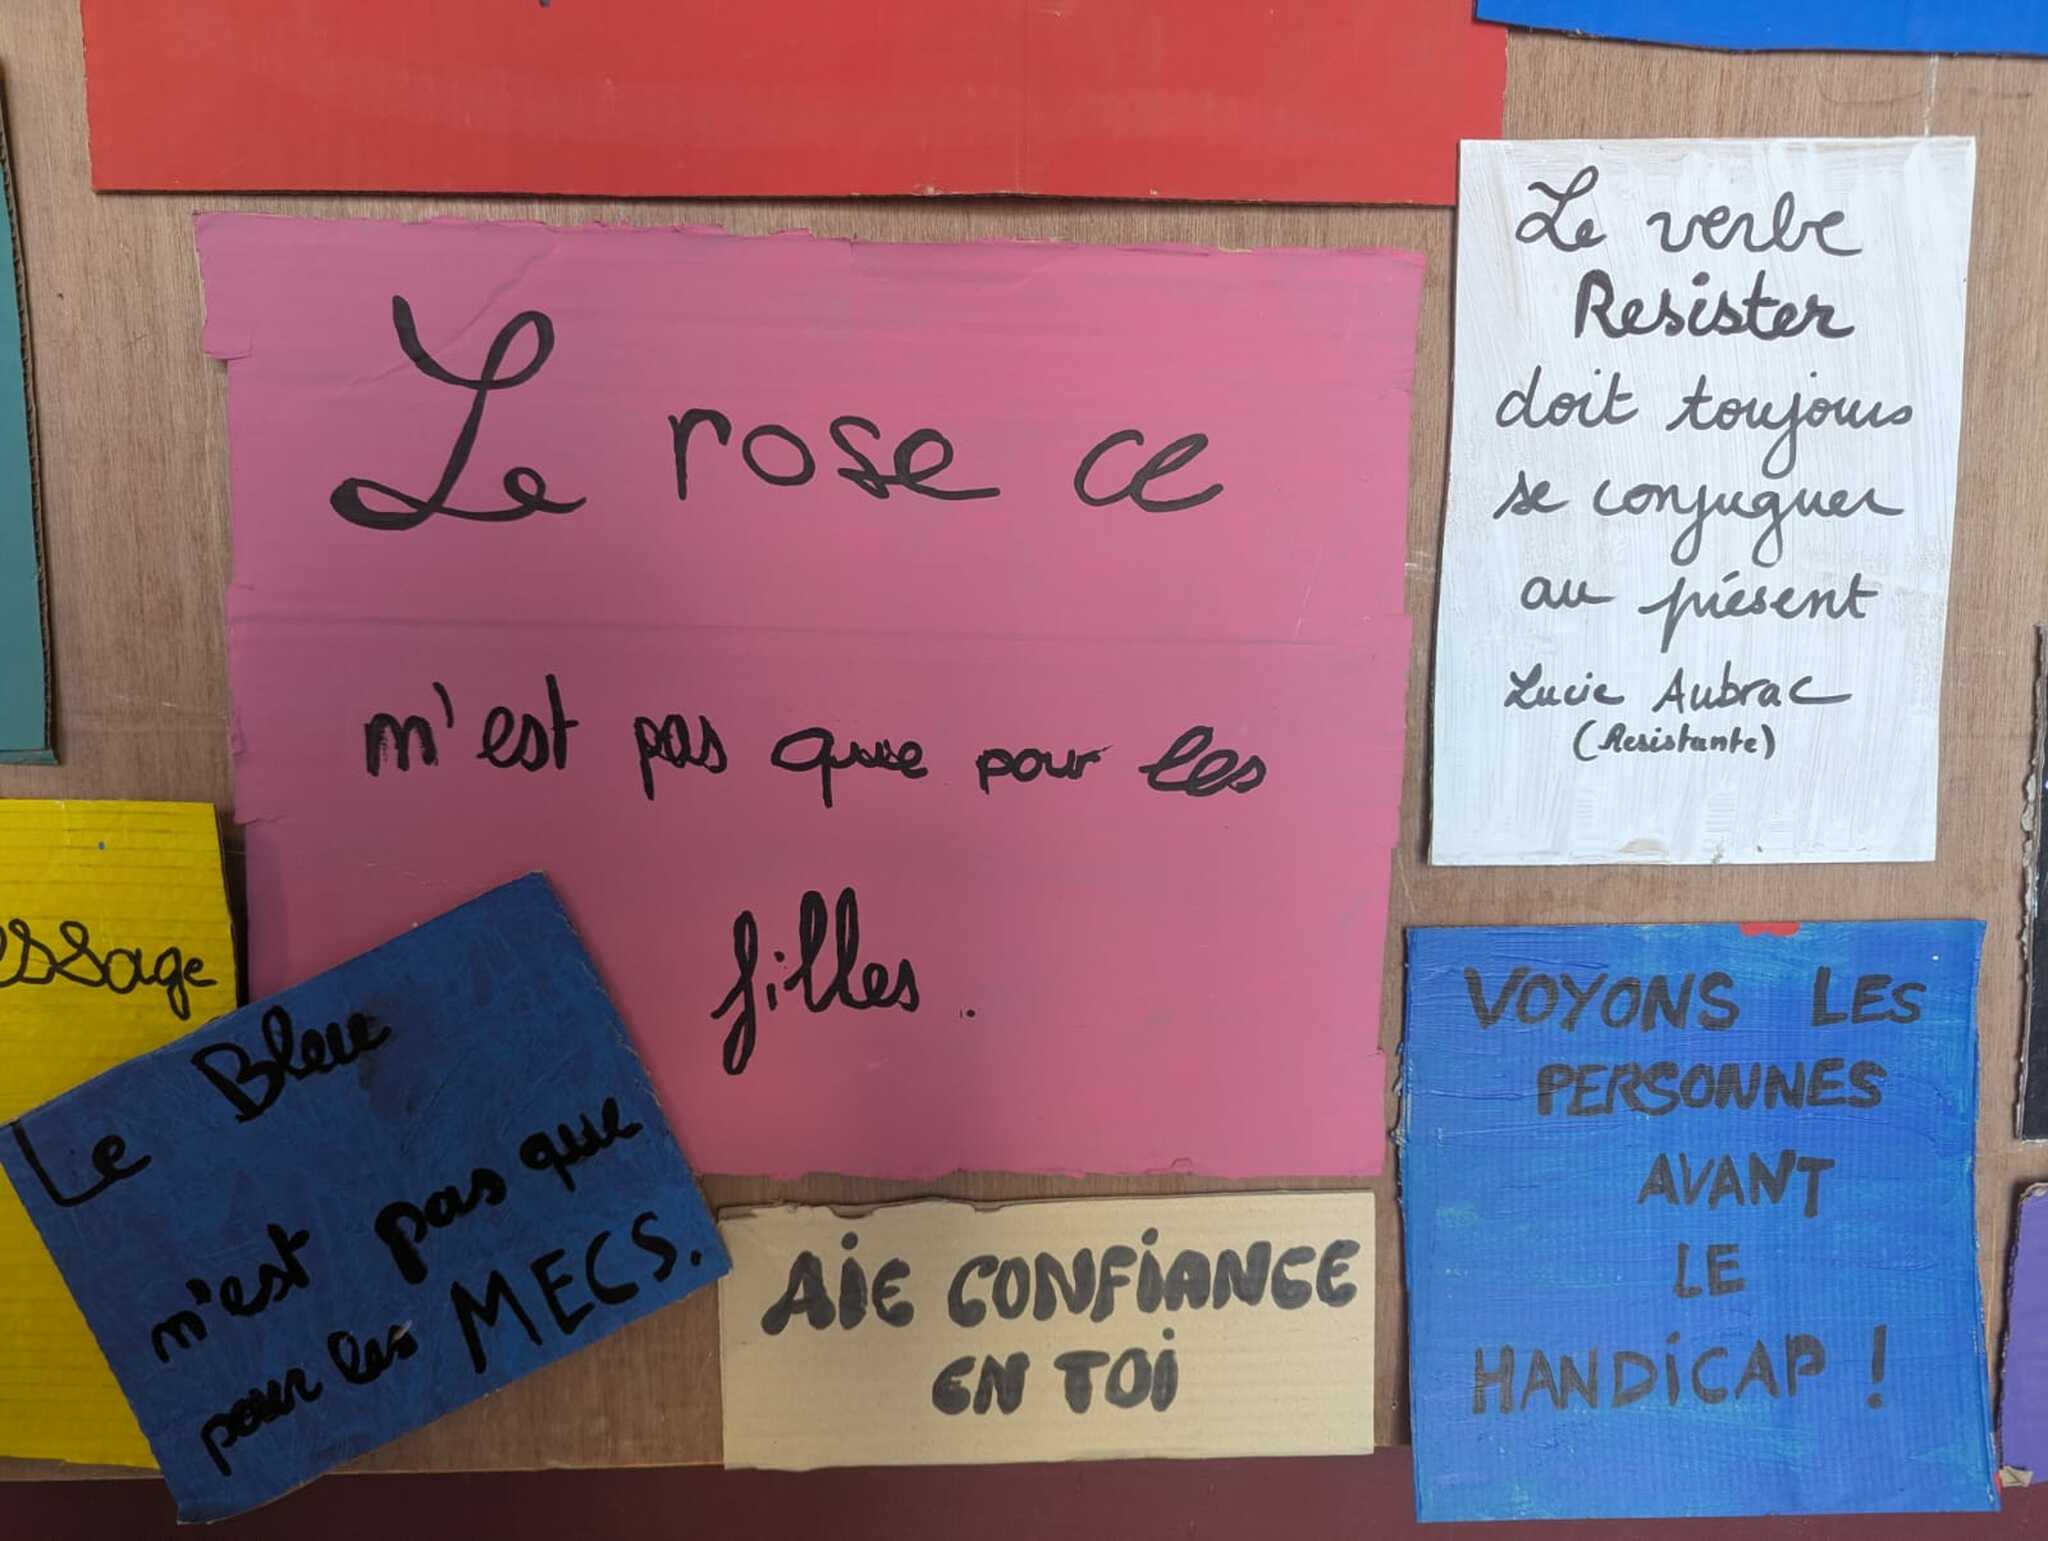 Le rose ce
n'est pas que pour les
filles.
Le verbe
Resister
doit toujours
se conjuguer
au présent
Lucie Aubrac
(Resistante)
Le Bleu
n'est pas que
pour les MECS.
AiE CONFiANCE
EN TOi
VOYONS LES
PERSONNES
AVANT
LE
HANDiCAP !